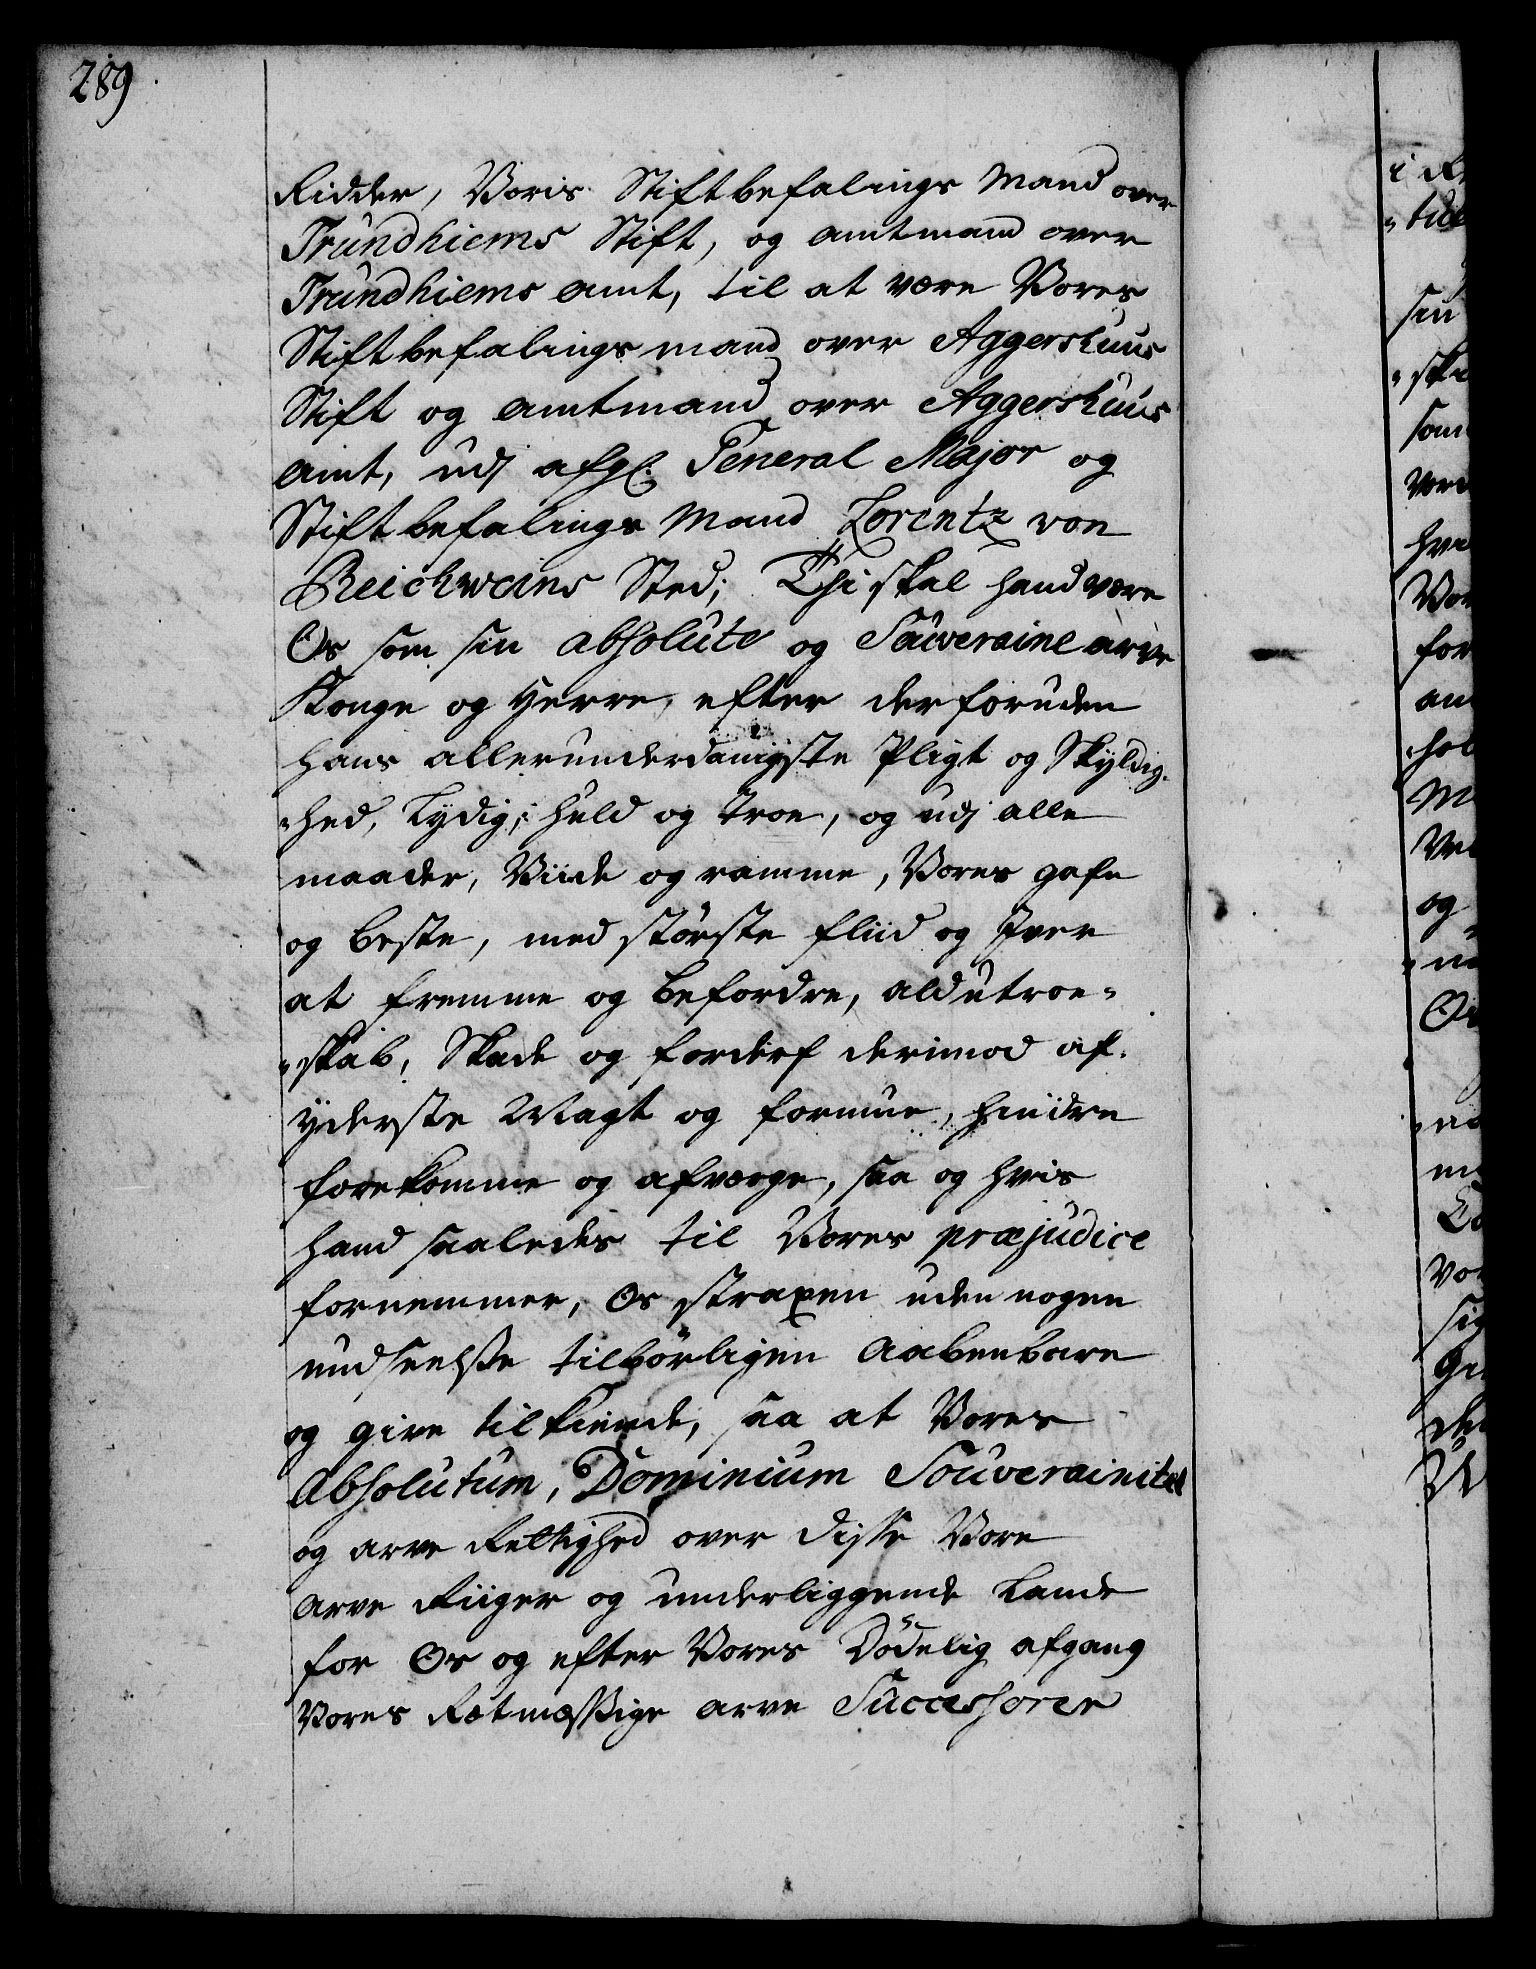 289
Ridder, Voris Stiftbefalings Mand over
Trundhiems Stift, og Amtmand over
Trundhiems Amt, til at være Vores
Stiftbefalings mand over Aggershuus
Stift og Amtmand over Aggershuus
Amt, udj afgl. General Major og
Stiftbefalings Mand Lorentz von
Reichweins Sted; Thi skal hand være
Os som sin absolute og Souveraine arve
Konge og Herre, efter der foruden
hans allerunderdanigste Pligt og Skyldig-
-hed, Lydig, huld og troe, og udj alle
maader, Viide og ramme, Vores gafn
og beste, med störste fliid og Iver
at fremme og befordre, ald utroe-
-skab, Skade og forderf derimod af
yderste Magt og formue, hindre
forekomme og afværge, saa og hvis
hand saaledes til Vores præjudice
fornemmer, Os straxen uden nogen
undseelse tilbörligen Aabenbare
og give tilkiende, saa at Vores
Absolutum, Dominium Souverainitet
og arve Rettighed over disse Vore
Arve Riiger og underliggende Lande
for Os og efter Vores Dödelig afgang
Vores Retmæssige arve Successorer